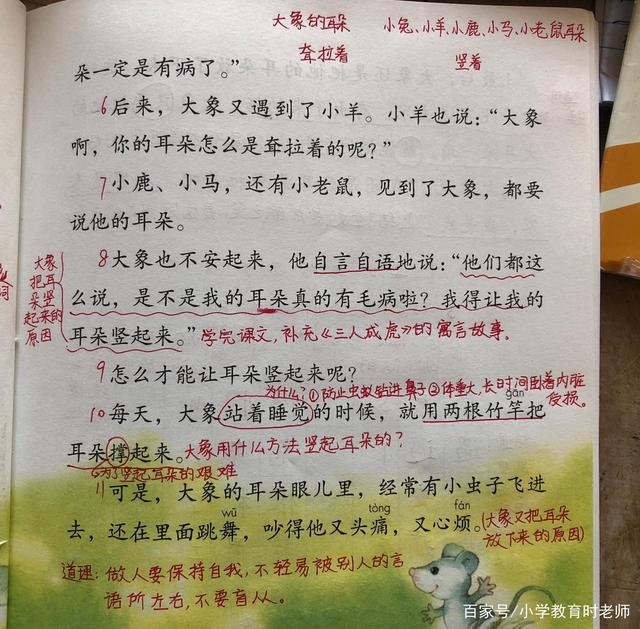 大象的耳朵 小兔、小羊、小鹿、小马、小老鼠耳朵
耷拉着 竖着
朵一定是有病了。”
6后来，大象又遇到了小羊。小羊也说：“大象
啊，你的耳朵怎么是耷拉着的呢？”
7小鹿、小马，还有小老鼠，见到了大象，都要
说他的耳朵。
8大象也不安起来，他自言自语地说：“他们都这
么说，是不是我的耳朵真的有毛病啦？我得让我的
耳朵竖起来。”学完课文，补充《三人成虎》的寓言故事。
大象
把耳
朵竖
起来的
原因
词
9怎么才能让耳朵竖起来呢？
为什么？①防止虫蚁钻进鼻子②体重大，长时间卧着内脏
受损。
gān
10每天，大象站着睡觉的时候，就用两根竹竿把
耳朵撑起来。大象用什么方法竖起耳朵的？
为了竖起耳朵的艰难
11可是，大象的耳朵眼儿里，经常有小虫子飞进
wǔ tòng fán
去，还在里面跳舞，吵得他又头痛，又心烦。(大象又把耳朵
放下来的原因)
道理：做人要保持自我，不轻易被别人的言
语所左右，不要盲从。
百家号/小学教育时老师